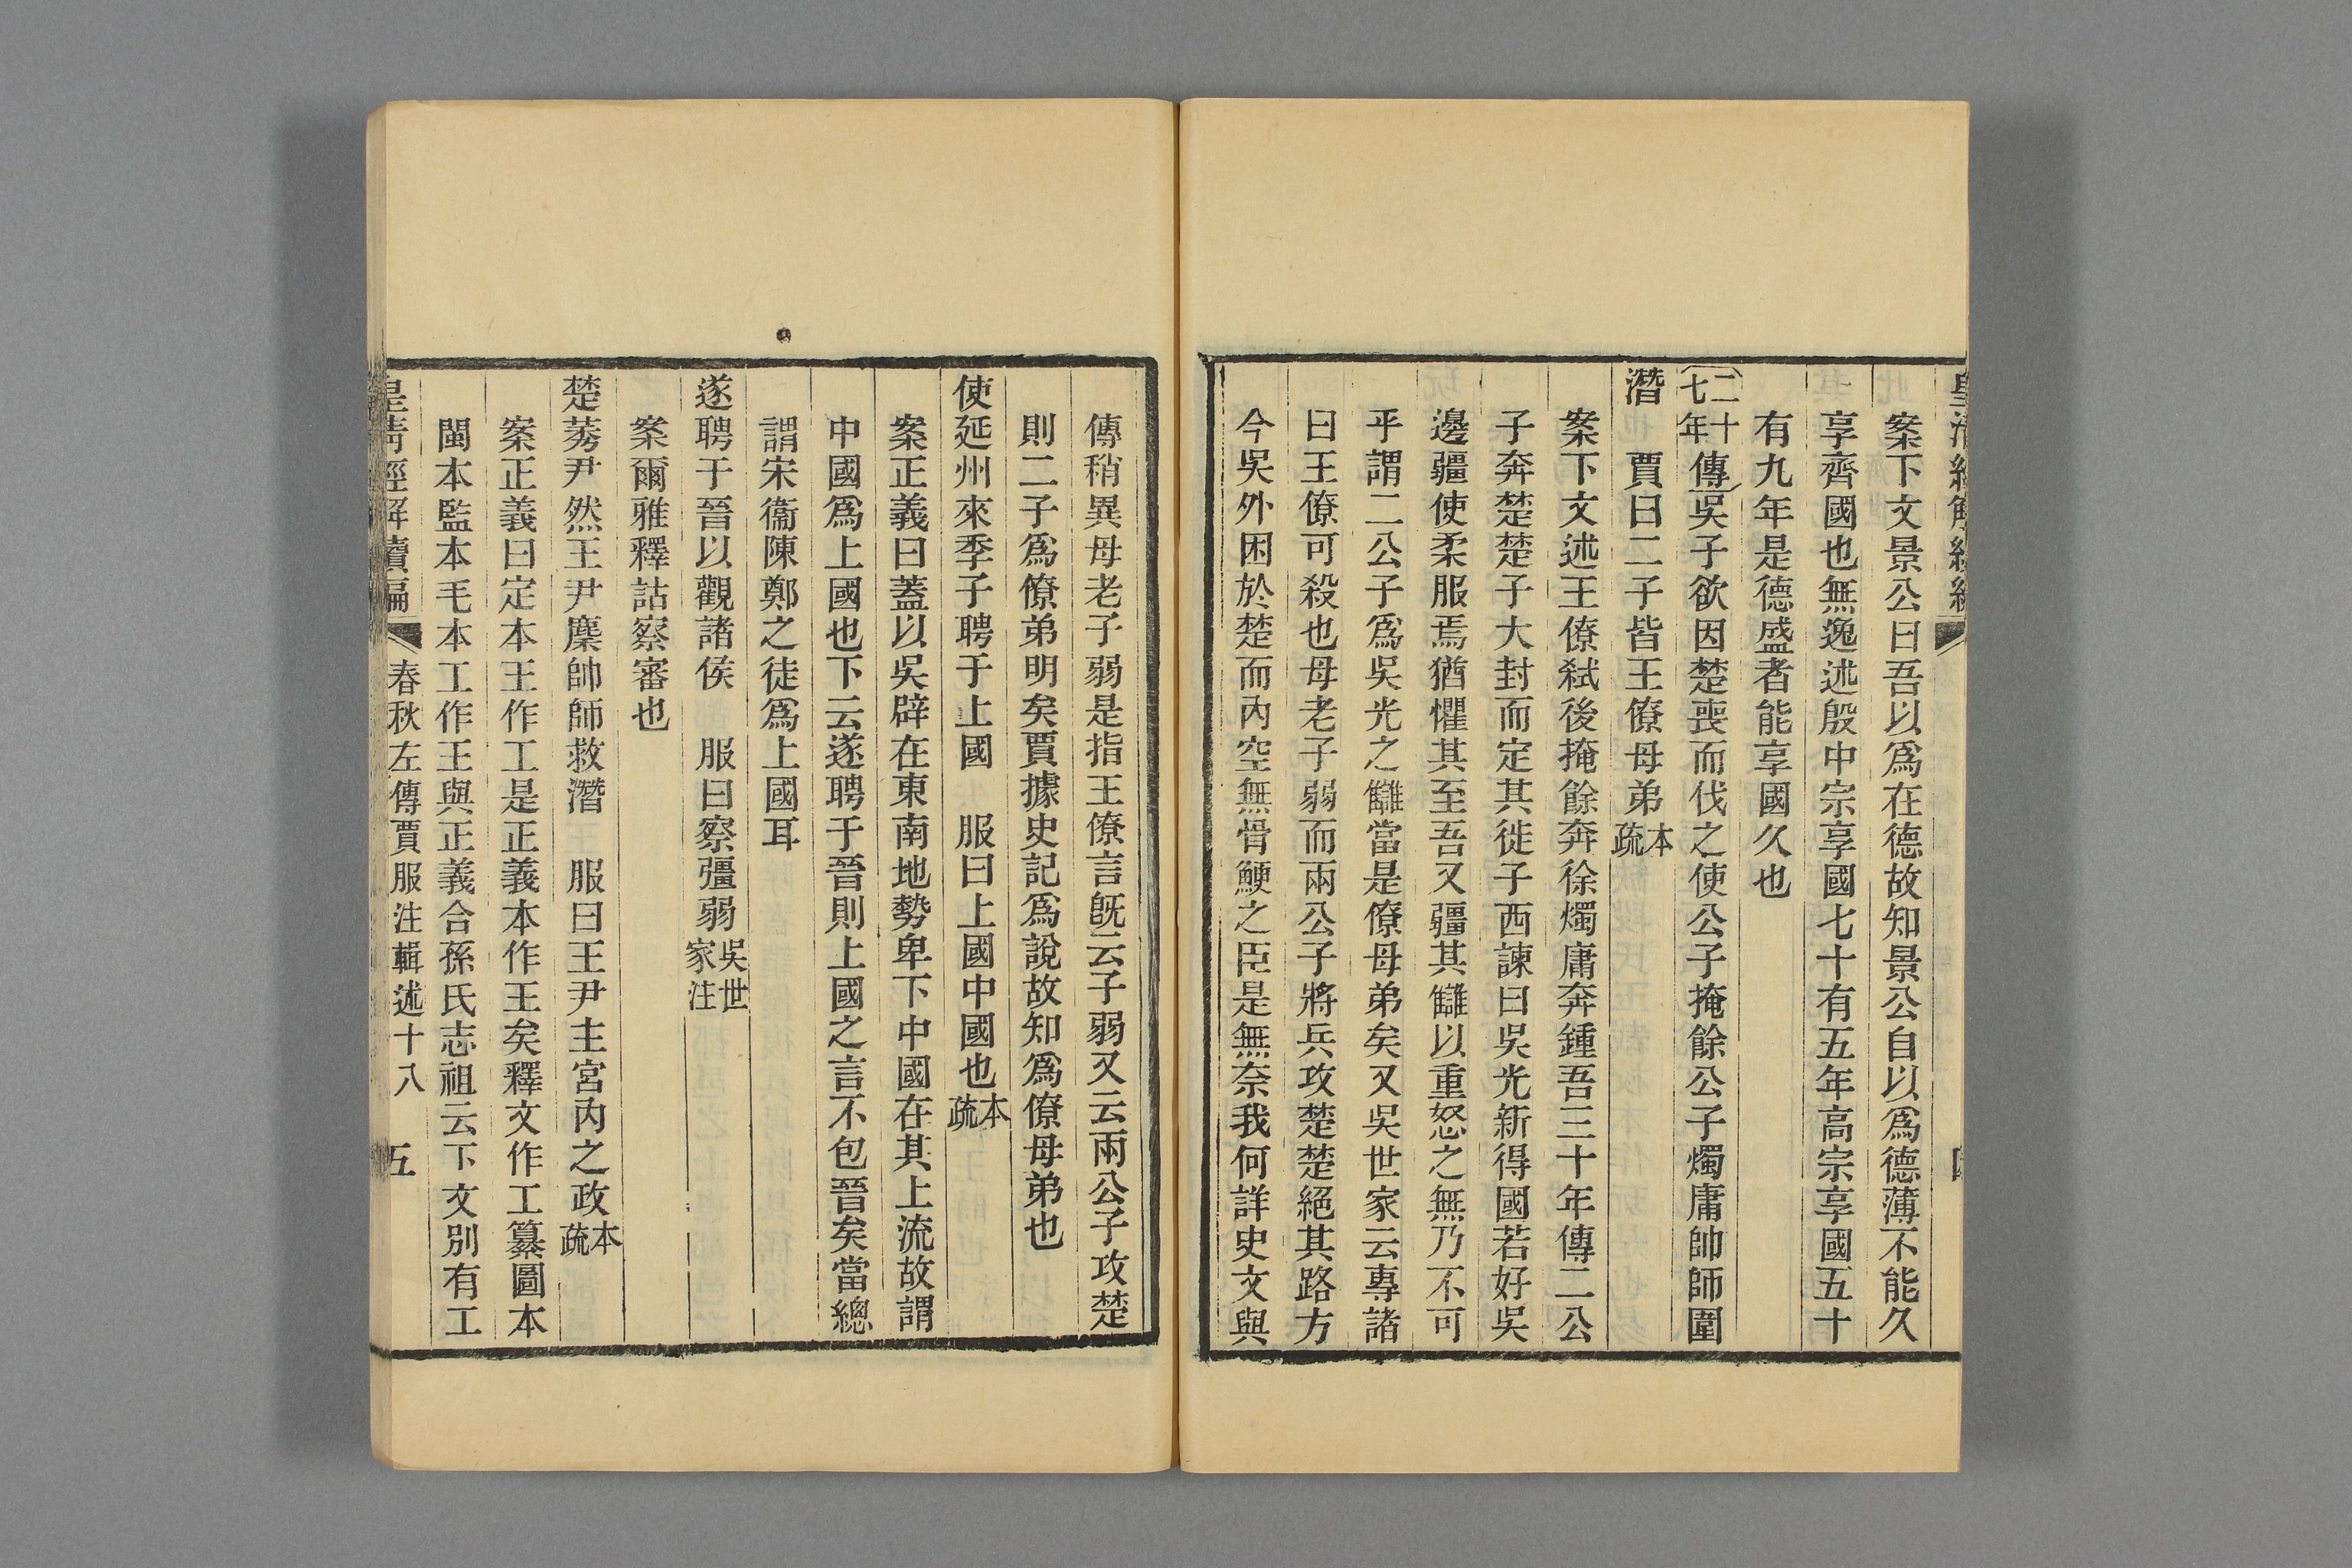 案下文景公曰吾以爲在德故知景公自以爲德薄不能久
享齊國也無逸述殷中宗享國七十有五年高宗享國五十
有九年是德盛者能享國久也
二十七年傳吳子欲因楚喪而伐之使公子掩餘公子燭庸帥師圍
潛　賈曰二子皆王僚母弟本疏
案下文述王僚弒後掩餘奔徐燭庸奔鍾吾三十年傳二公
子奔楚楚子大封而定其徙子西諫曰吳光新得國若好吳
邊疆使柔服焉猶懼其至吾又疆其讎以重怒之無乃不可
乎謂二公子爲吳光之讎當是僚母弟矣又吳世家云專諸
曰王僚可殺也母老子弱而兩公子將兵攻楚楚絕其路方
今吳外困於楚而內空無骨鯁之臣是無奈我何詳史文與
傳稍異母老子弱是指王僚言旣云子弱又云兩公子攻楚
則二子爲僚弟明矣賈據史記爲說故知爲僚母弟也
使延州來季子聘于上國　服曰上國中國也本疏
案正義曰蓋以吳辟在東南地勢卑下中國在其上流故謂
中國爲上國也下云遂聘于晉則上國之言不包晉矣當總
謂宋衞陳鄭之徒爲上國耳
遂聘于晉以觀諸侯　服曰察彊弱吳世家注
案爾雅釋詁察審也
楚莠尹然王尹麇帥師救潛　服曰王尹主宮內之政本疏
案正義曰定本王作工是正義本作王矣釋文作工纂圖本
閩本監本毛本工作王與正義合孫氏志祖云下文別有工
皇清經解續編　春秋左傳賈服注輯述十八　五